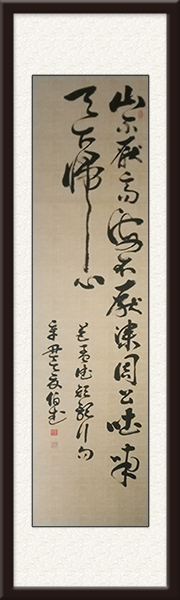 山不厭高海不厭深周公吐哺
天下歸心
孟德短歌行句
辛丑之夏伯